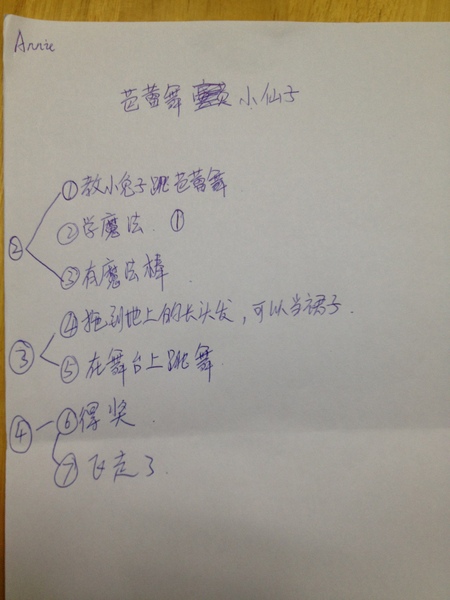 Annie
芭蕾舞 小仙子
① 教小兔子跳芭蕾舞
② 学魔法. ①
② ③ 有魔法棒.
④ 拖到地上的长头发，可以当裙子.
③ ⑤ 在舞台上跳舞.
④ ⑥ 得奖
⑦ 飞走了.